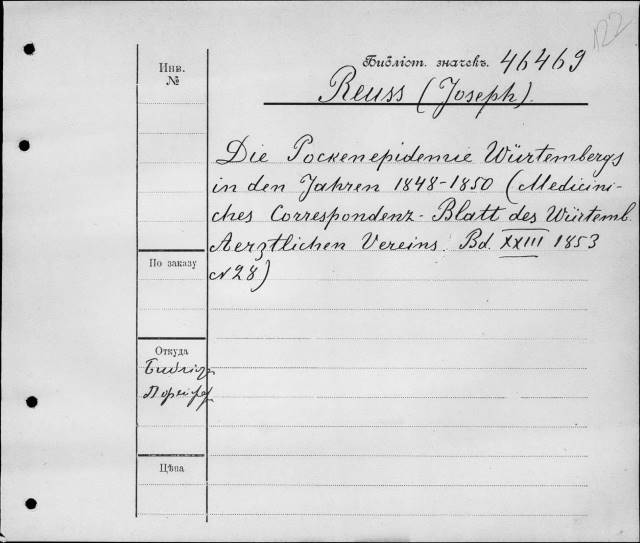 122
Библіот. значекъ. 46469
Инв.
№
Reuss (Joseph).
Die Pockenepidemie Würtembergs
in den Jahren 1848-1850 (Medicini-
ches Correspondenz-Blatt des Würtemb.
Aerztlichen Vereins. Bd. XXIII 1853
N 28)
По заказу
Откуда
Цѣна